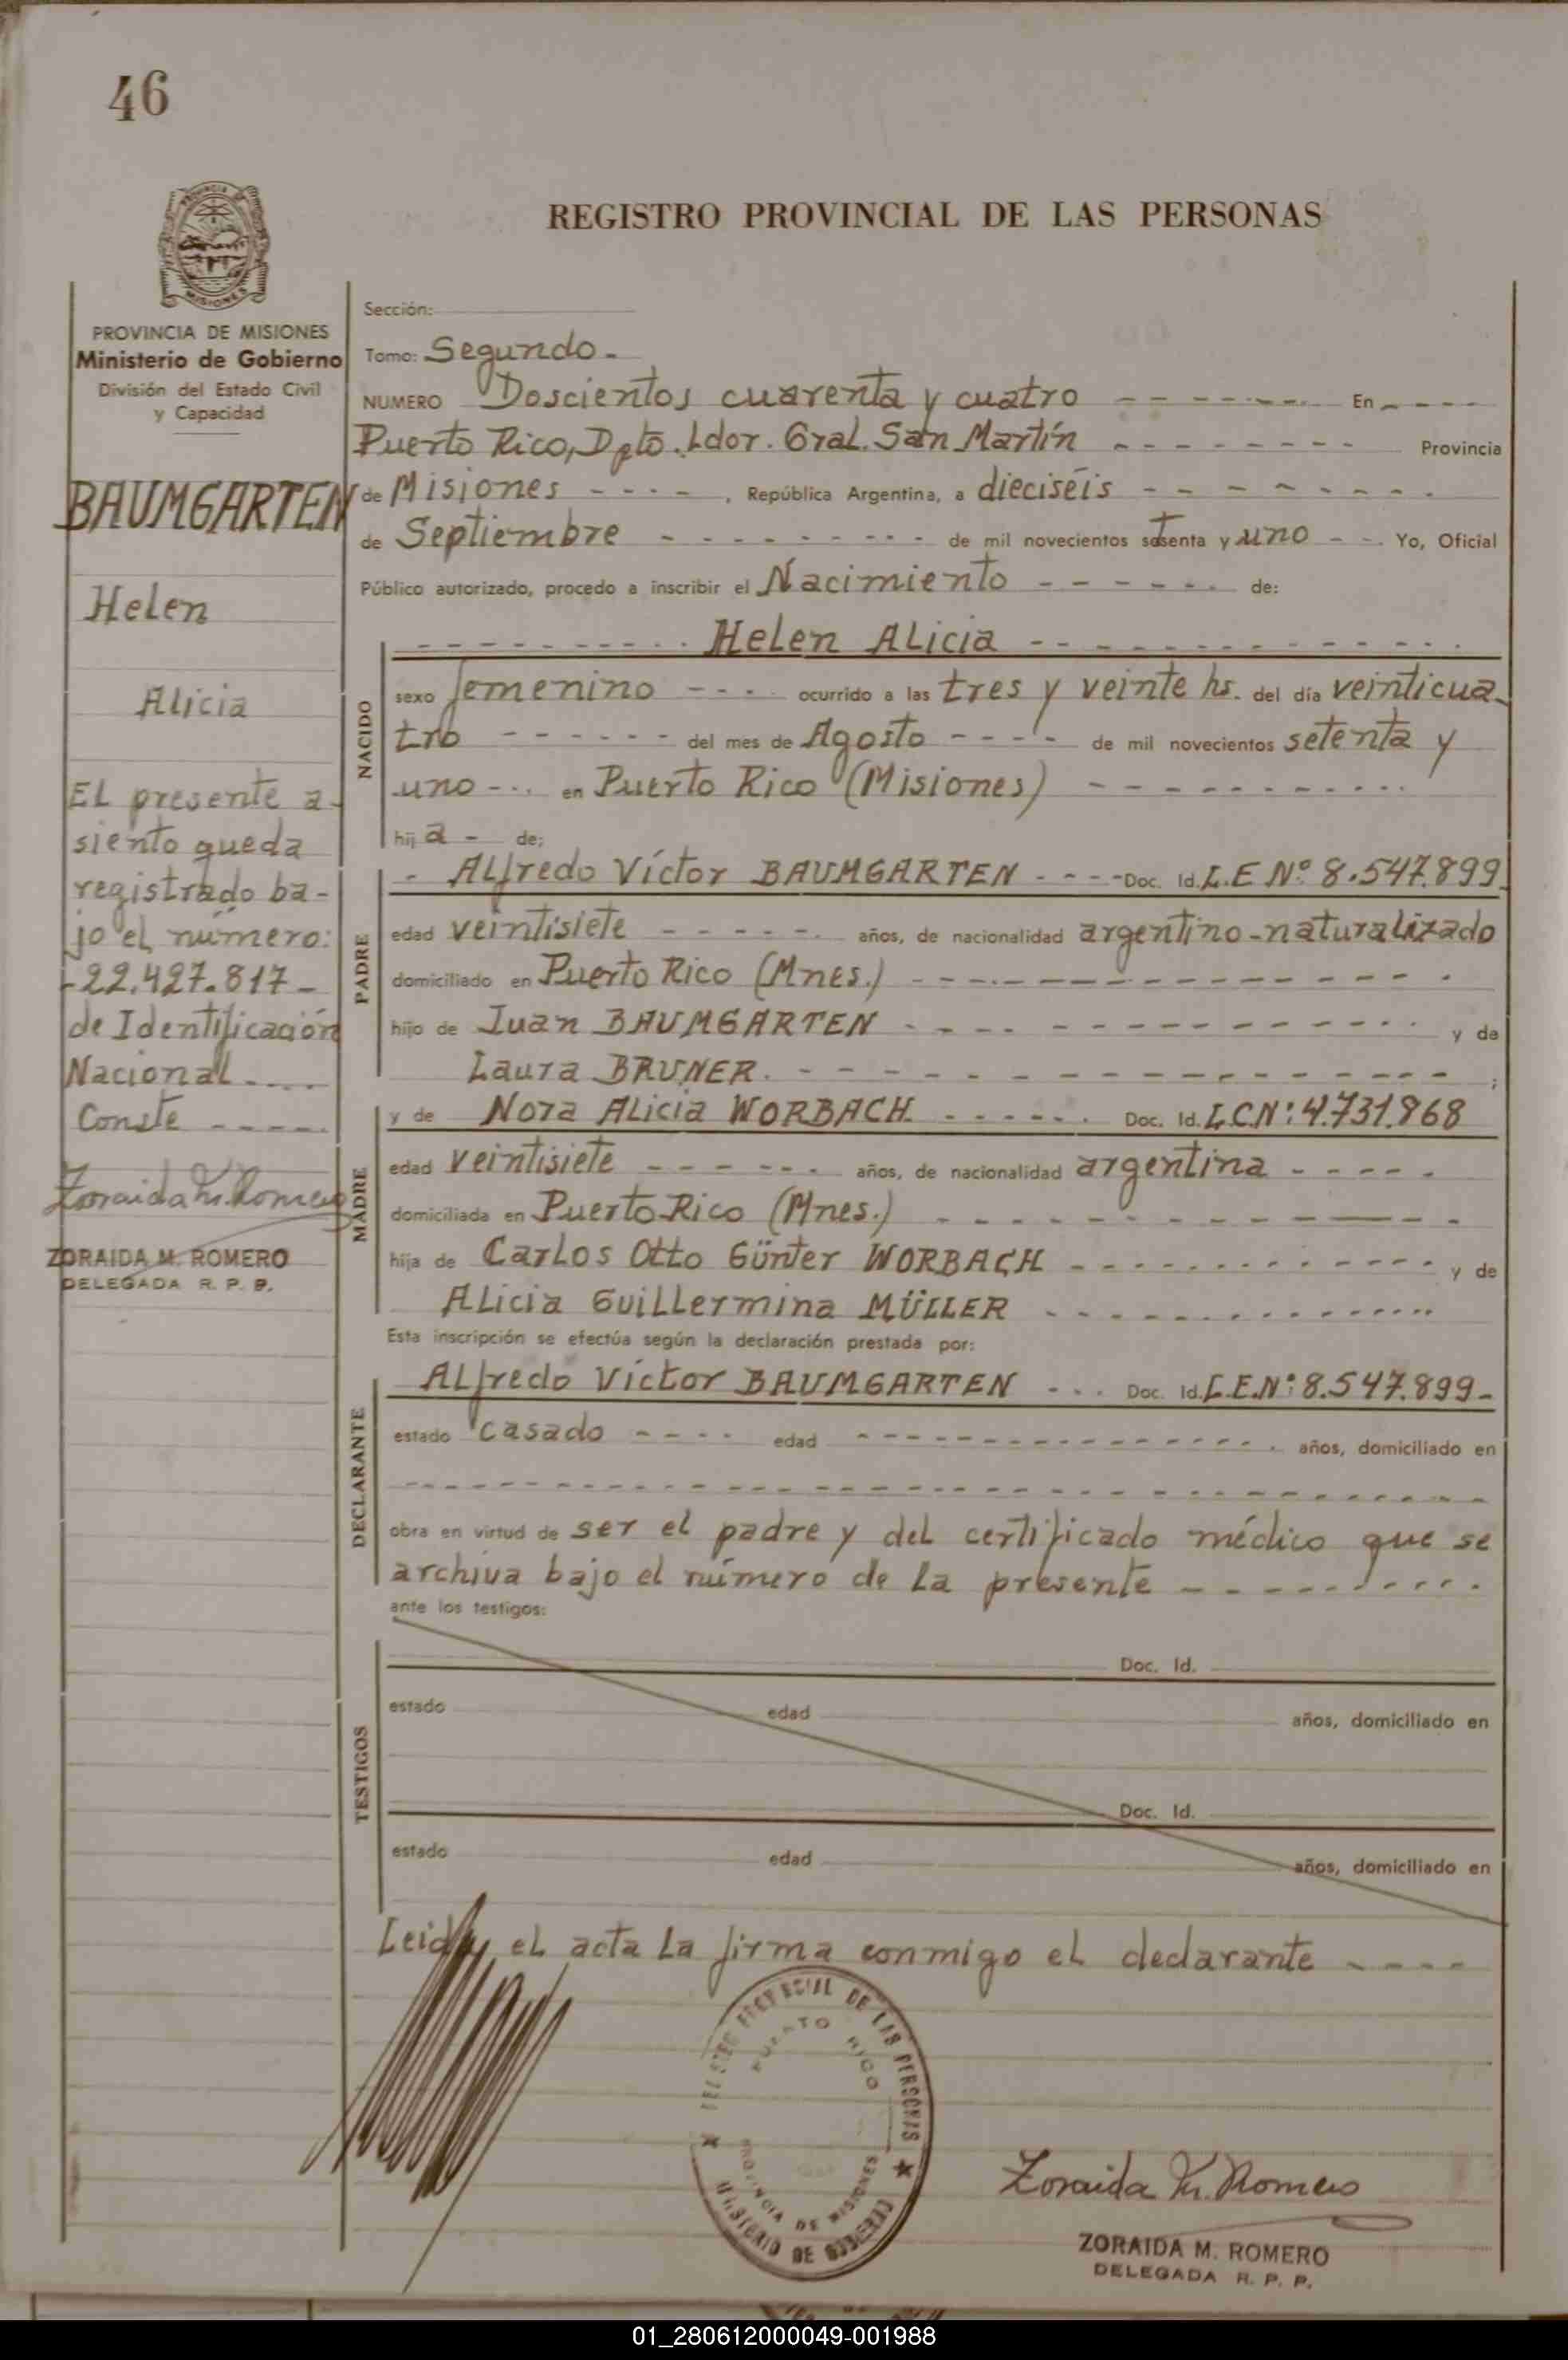 46
PROVINCIA DE
MISIONES
PROVINCIA DE MISIONES
Ministerio de Gobierno
División del Estado Civil
y Capacidad
BAUMGARTEN
Helen
Alicia
El presente a-
siento queda
registrado ba-
jo el número:
-22.427.817-
de Identificación
Nacional ....
Conste -----.
Zoraida M. Romero
ZORAIDA M. ROMERO
DELEGADA R. P. P.
REGISTRO PROVINCIAL DE LAS PERSONAS
Sección:
Tomo: Segundo.-
NUMERO Doscientos cuarenta y cuatro - - - - - - - En - - - -
Puerto Rico, Dpto. Ldor. Gral. San Martín - - - - - - - - - Provincia
de Misiones - - - - , República Argentina, a dieciséis - - - - - - - -
de Septiembre - - - - - - - - - de mil novecientos setenta y uno - - Yo, Oficial
Público autorizado, procedo a inscribir el Nacimiento - - - - - - de:
- - - - - - - - - - Helen Alicia - - - - - - - - - - - - -
NACIDO
sexo femenino - - - ocurrido a las tres y veinte hs. del día veinticua-
tro - - - - - - - del mes de Agosto - - - - - de mil novecientos setenta y
uno - - - en Puerto Rico (Misiones) - - - - - - - - - - -
hij a - de:
PADRE
- Alfredo Víctor BAUMGARTEN - - - - Doc. Id. L.E Nº 8.547.899
edad veintisiete - - - - - - años, de nacionalidad argentino-naturalizado
domiciliado en Puerto Rico (Mnes.) - - - - - - - - - - - - - -
hijo de Juan BAUMGARTEN - - - - - - - - - - - - - - y de
Laura BRUNER. - - - - - - - - - - - - - - - - ;
MADRE
y de Nora Alicia WORBACH. - - - - - - Doc. Id. L.C.Nº: 4.731.868
edad veintisiete - - - - - - - años, de nacionalidad argentina - - - - -
domiciliada en Puerto Rico (Mnes.) - - - - - - - - - - - - -
hija de Carlos Otto Günter WORBACH - - - - - - - - - - - - y de
Alicia Guillermina MÜLLER - - - - - - - - - - - - -
Esta inscripción se efectúa según la declaración prestada por:
DECLARANTE
Alfredo Víctor BAUMGARTEN - - - Doc. Id. L.E.Nº: 8.547.899-
estado casado - - - - edad - - - - - - - - - - - - - - años, domiciliado en
- - - - - - - - - - - - - - - - - - - - - - - - - -
obra en virtud de ser el padre y del certificado médico que se
archiva bajo el número de la presente - - - - - - - - - -
ante los testigos:
TESTIGOS
Doc. Id.
estado edad años, domiciliado en
Doc. Id.
estado edad años, domiciliado en
Leida el acta la firma conmigo el declarante - - - -
REGISTRO PROVINCIAL DE LAS PERSONAS
PUERTO RICO
PROVINCIA DE MISIONES
MINISTERIO DE GOBIERNO
Zoraida M. Romero
ZORAIDA M. ROMERO
DELEGADA R. P. P.
01_280612000049-001988